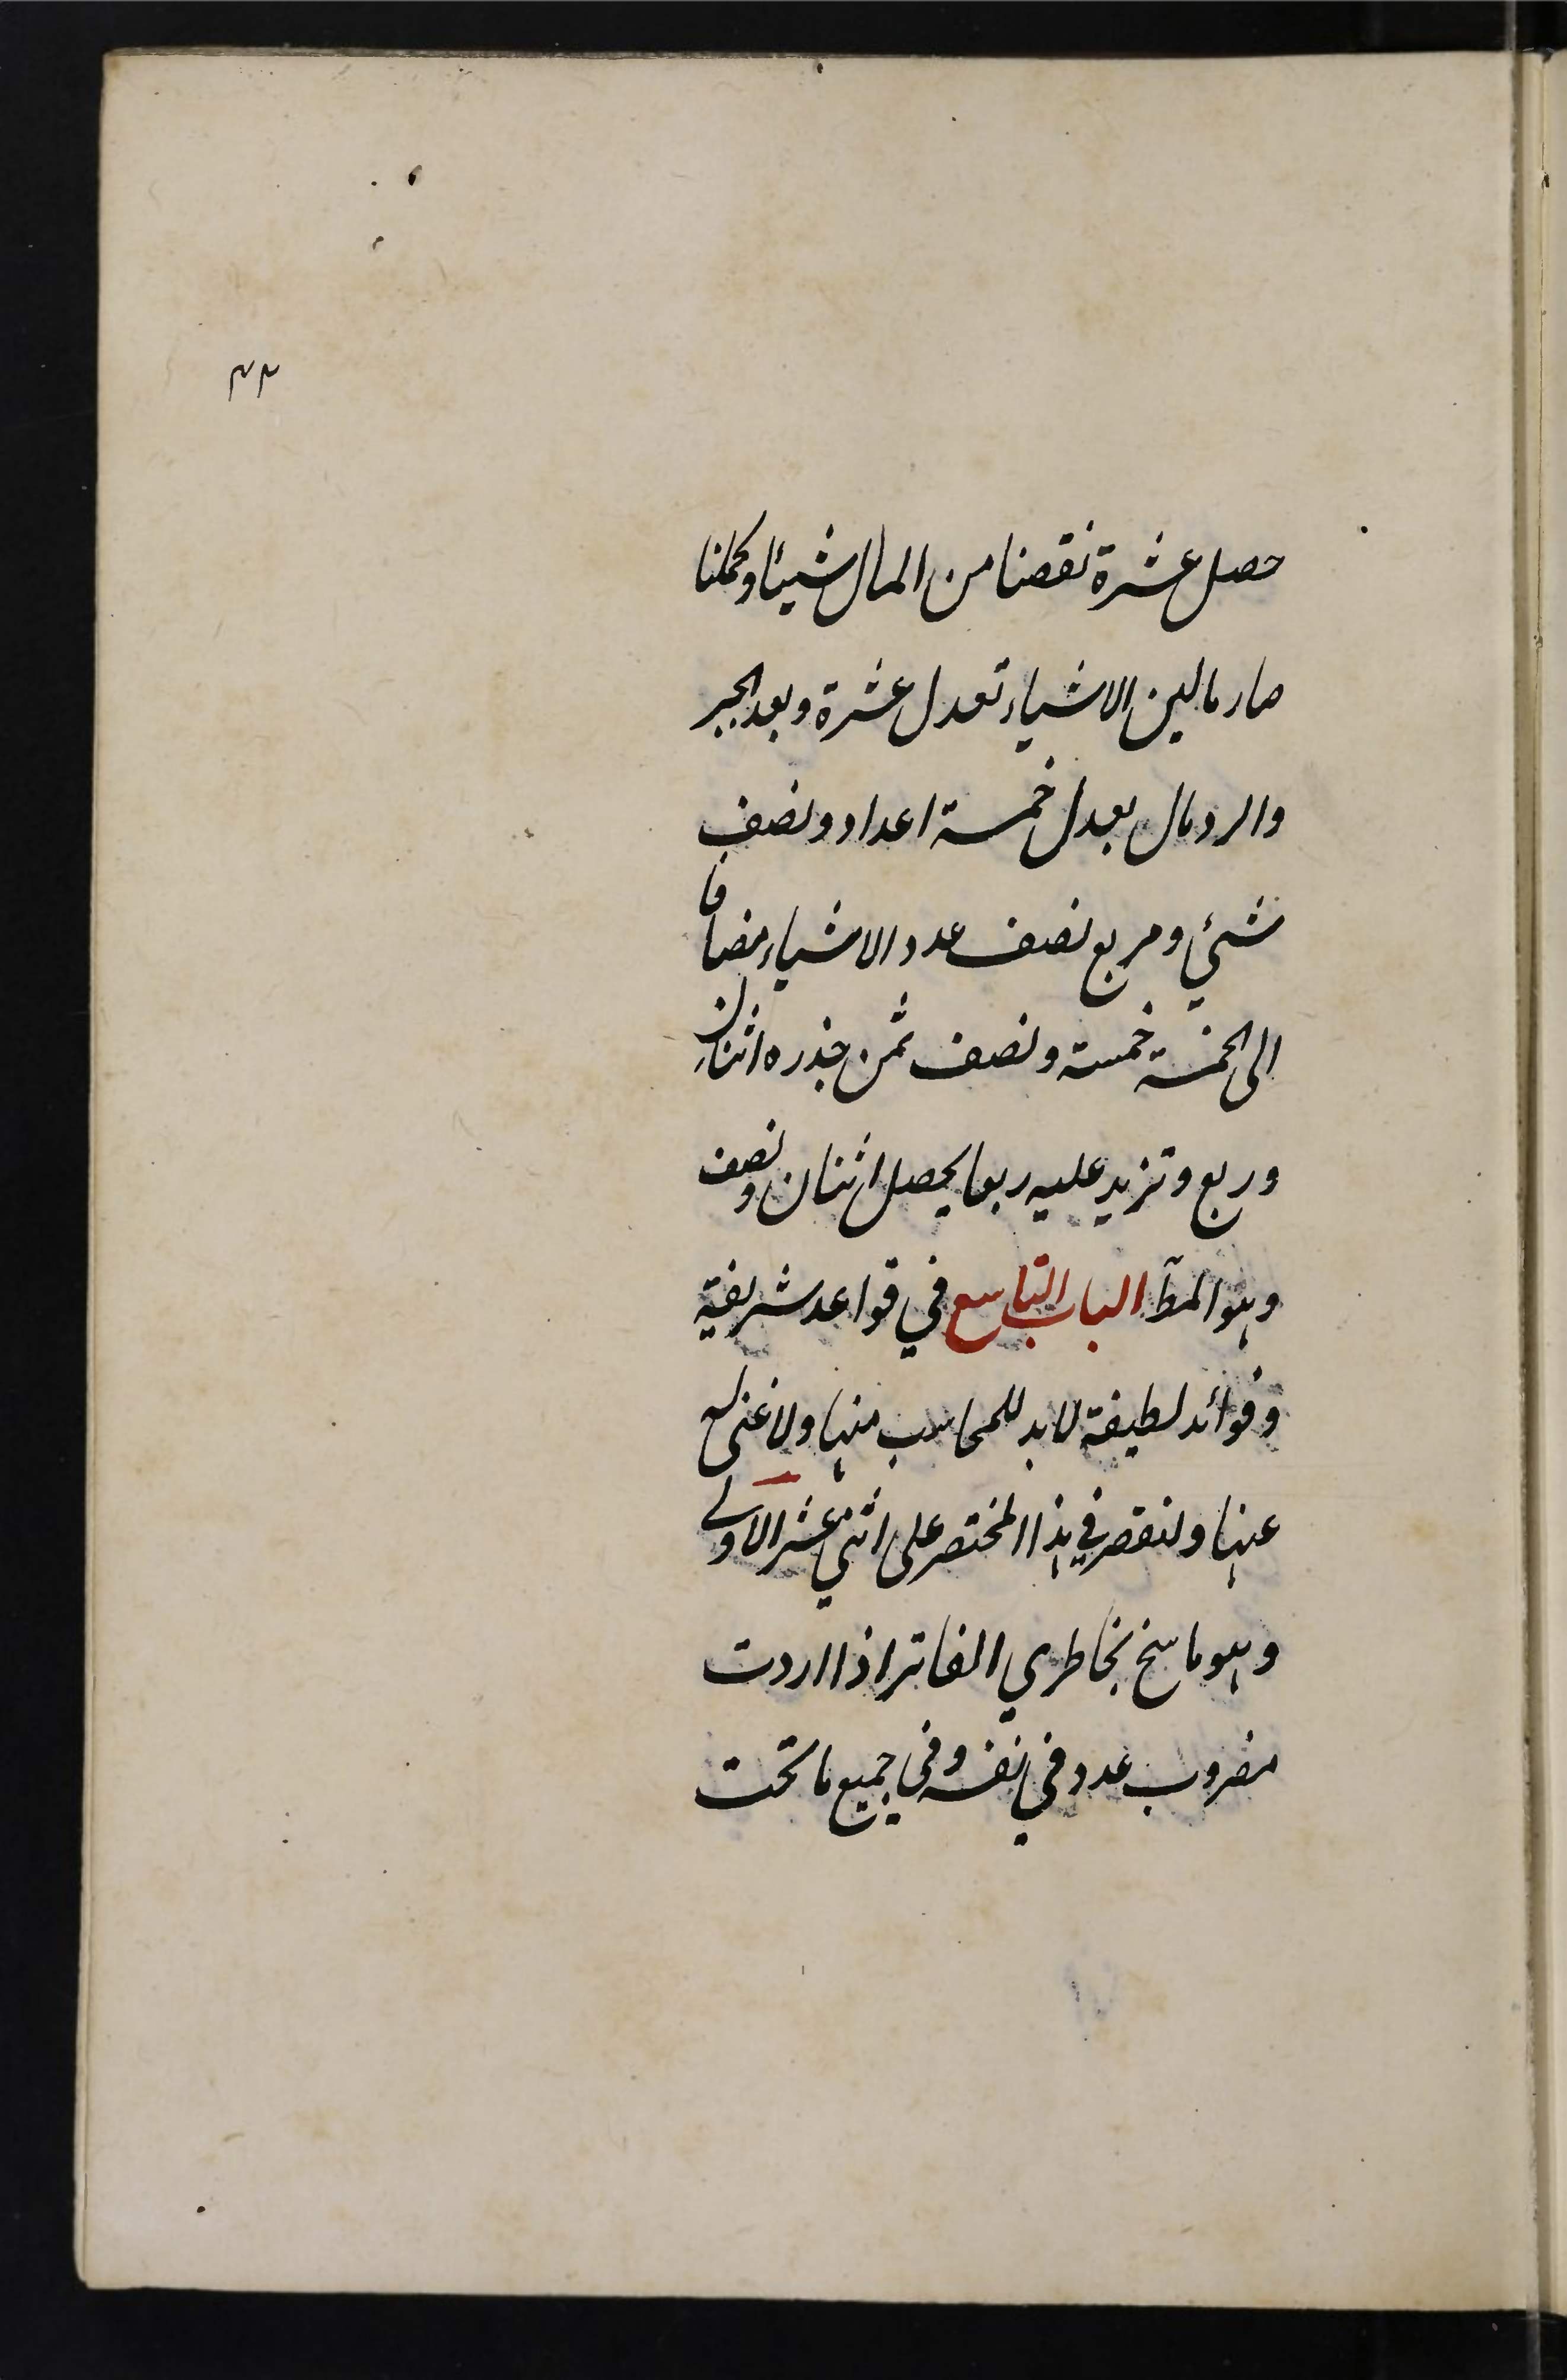 ٣٣
حصل عشرة نقصنا من المال شيئا وكملنا
صار مالين الا شياء تعدل عشرة وبعد الجبر
والرد مال يعدل خمسة اعداد ونصف
شيئ ومربع نصف عدد الاشياء مضافا
الى الخمسة خمسة ونصف ثمن جذره اثنان
وربع وتزيد عليه ربعا يحصل اثنان ونصف
وهو المط الباب التاسع في قواعد شريفة
وفوائد لطيفة لابد للمحاسب منها ولا غنى له
عنها ولنقصر في هذا المختصر على اثنى عشر الاولى
وهو ما سنح بخاطري الفاتر اذا اردت
مضروب عدد في نفسه وفي جميع ما تحت